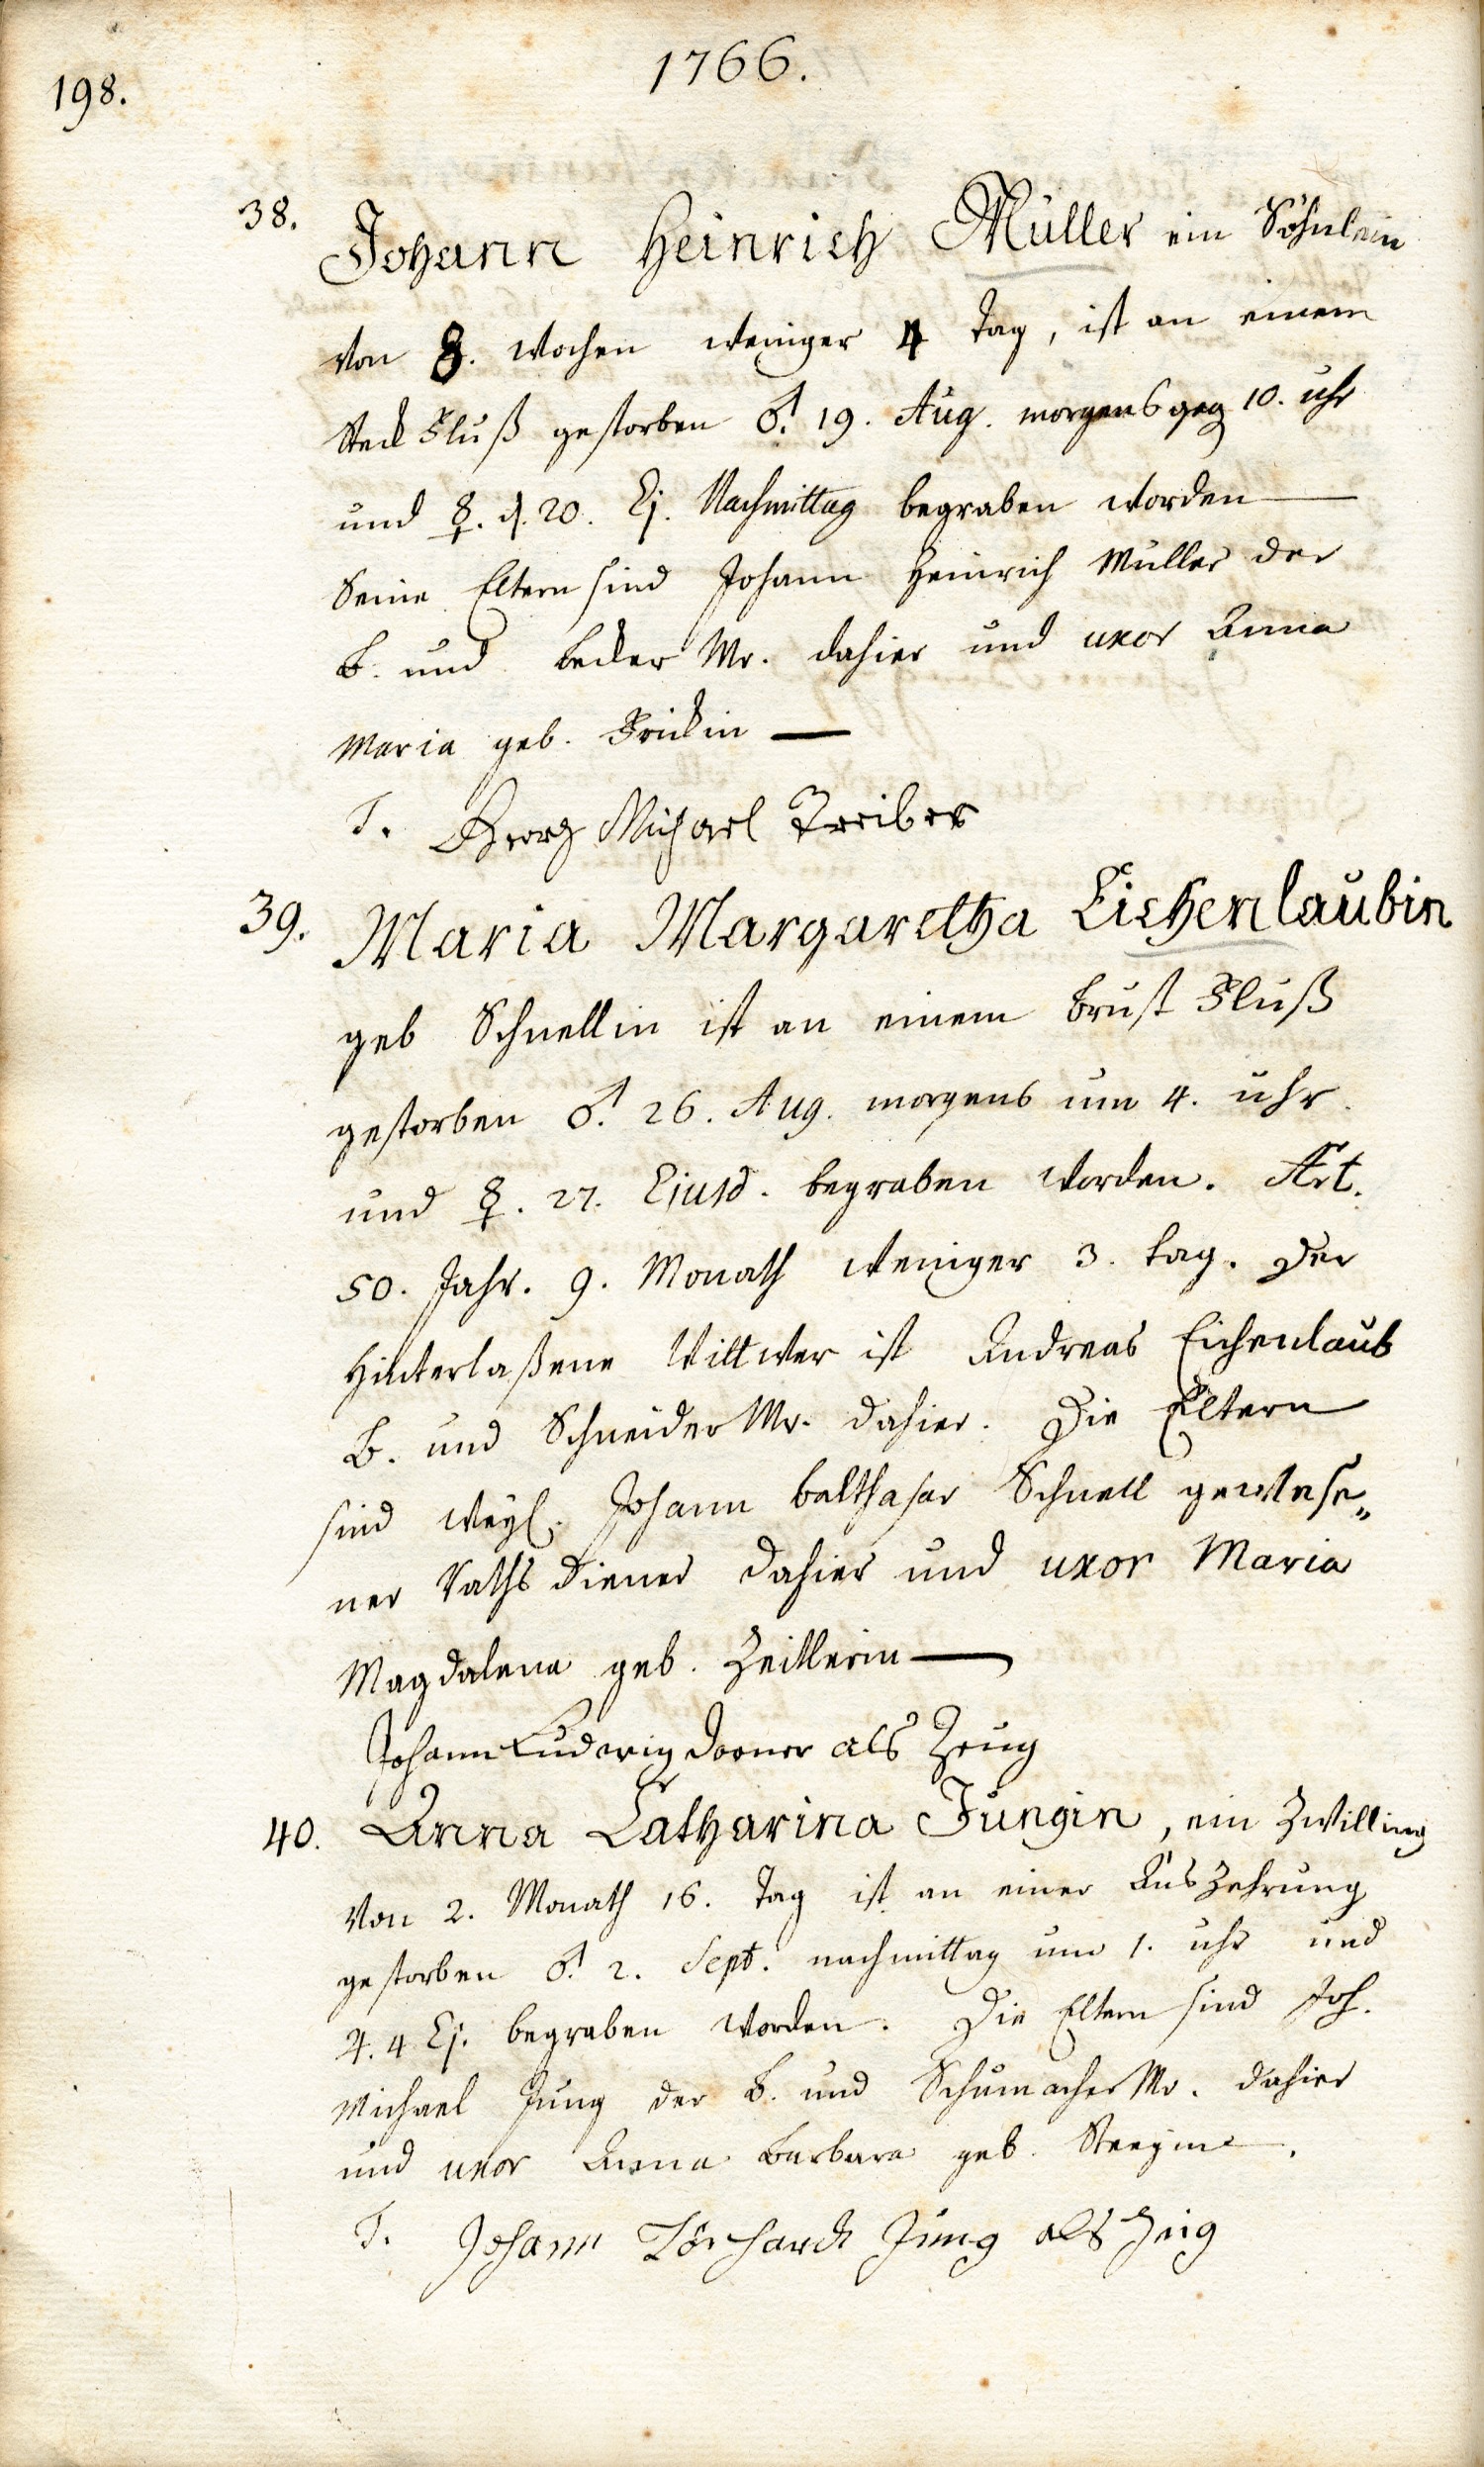 1766.
198.
38. Johann Heinrich Müller ein Söhnlein
von 8. Wochen weniger 4 Tag, ist an einem
Steck Fluß gestorben ♂. 19. Aug. morgens geg 10. uhr
und ☿. d. 20. Ej. Nachmittag begraben worden —
Seine Eltern sind Johann Heinrich Müller der
B. und Becker Mr. dahier und uxor Anna
Maria geb. Frickin —
T. Georg Michael Treiber
39. Maria Margaretha Eichenlaubin
geb Schnellin ist an einem Brust Fluß
gestorben ♂. 26. Aug. morgens um 4. uhr.
und ☿. 27. Ejusd. begraben worden. Aet.
50. Jahr. 9. Monath weniger 3. tag. Der
Hinterlaßene Wittwer ist Andreas Eichenlaub
B. und Schneider Mr. dahier. Die Eltern
sind weyl. Johann Balthasar Schnell gewese„
ner Raths Diener dahier und uxor Maria
Magdalena geb. Zeitlerin —
Johann Ludwig Dorner als Zeug
40. Anna Catharina Jungin, ein Zwilling
von 2. Monath 16. Tag ist an einer Auszehrung
gestorben ♂. 2. Sept. nachmittag um 1. uhr und
♃. 4 Ej. begraben worden. Die Eltern sind Joh.
Michael Jung der B. und Schumacher Mr. dahier
und uxor Anna Barbara geb.
T. Johann Jung als Zeig